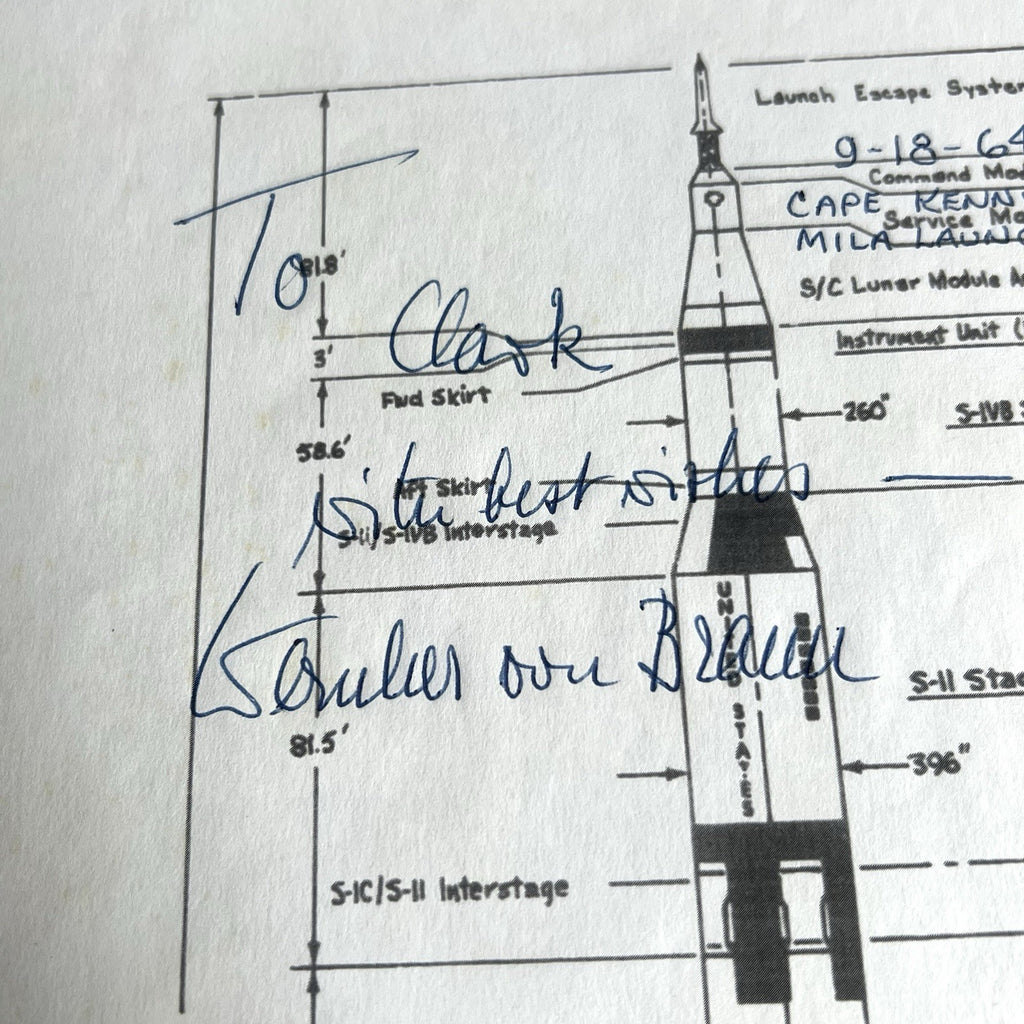 Launch Escape System
9-18-64
Command Mod
CAPE KENN
Service Mo
MILA LAUNC
To
81.8'
S/C Lunar Module A
Clark
Instrument Unit (
3'
Fwd Skirt
260"
S-IVB
58.6'
with best wishes
Aft Skirt
S-II/S-IVB Interstage
UNITED STATES
Wernher von Braun
S-II Stag
81.5'
396"
S-IC/S-II Interstage